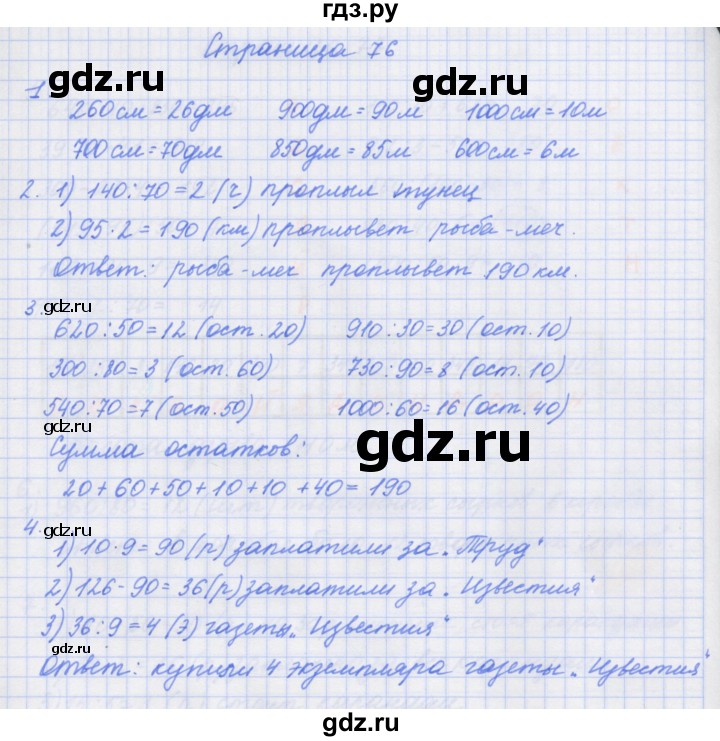 гдз.рф
Страница 76
gdz.ru gdz.ru
1.
260см = 26дм 900дм = 90м 1000см = 10м
700см = 70дм 850дм = 85м 600см = 6м
2. 1) 140:70 = 2 (ч) проплыл тунец
2) 95·2 = 190 (км) проплывет рыба-меч.
Ответ: рыба-меч проплывет 190 км.
gdz.ru
3.
620:50 = 12 (ост. 20) 910:30 = 30 (ост. 10)
gdz.ru
300:80 = 3 (ост. 60) 730:90 = 8 (ост. 10)
540:70 = 7 (ост. 50) 1000:60 = 16 (ост. 40)
gdz.ru
Сумма остатков: gdz.ru
20+60+50+10+10+40 = 190
4. gdz.ru
1) 10·9 = 90 (р) заплатили за „Труд“
2) 126-90 = 36 (р) заплатили за „Известия“
gdz.ru
3) 36:9 = 4 (э) газеты „Известия“
Ответ: купили 4 экземпляра газеты „Известия“
gdz.ru
gdz.ru